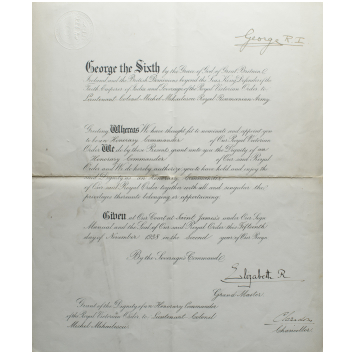 George R. I.
George the Sixth by the Grace of God of Great Britain,
Ireland and the British Dominions beyond the Seas, King, Defender of the
Faith, Emperor of India and Sovereign of the Royal Victorian Order to
Lieutenant Colonel Michel Royal Roumanian Army,
Greeting Whereas We have thought fit to nominate and appoint you
to be an Honorary Commander of Our Royal Victorian
Order We do by these Presents grant unto you the Dignity of an
Honorary Commander of Our said Royal
Order and We do hereby authorize you to have hold and enjoy the
said Dignity as an Honorary Commander
of Our said Royal Order together with all and singular the
privileges thereunto belonging or appertaining.
Given at Our Court at Saint James's under Our Sign
Manual and the Seal of Our said Royal Order this Fifteenth
day of November 1938 in the Second year of Our Reign.
By the Sovereign's Command.
Elizabeth R
Grand Master.
Grant of the Dignity of an Honorary Commander
of the Royal Victorian Order to Lieutenant Colonel
Michel
Chancellor.